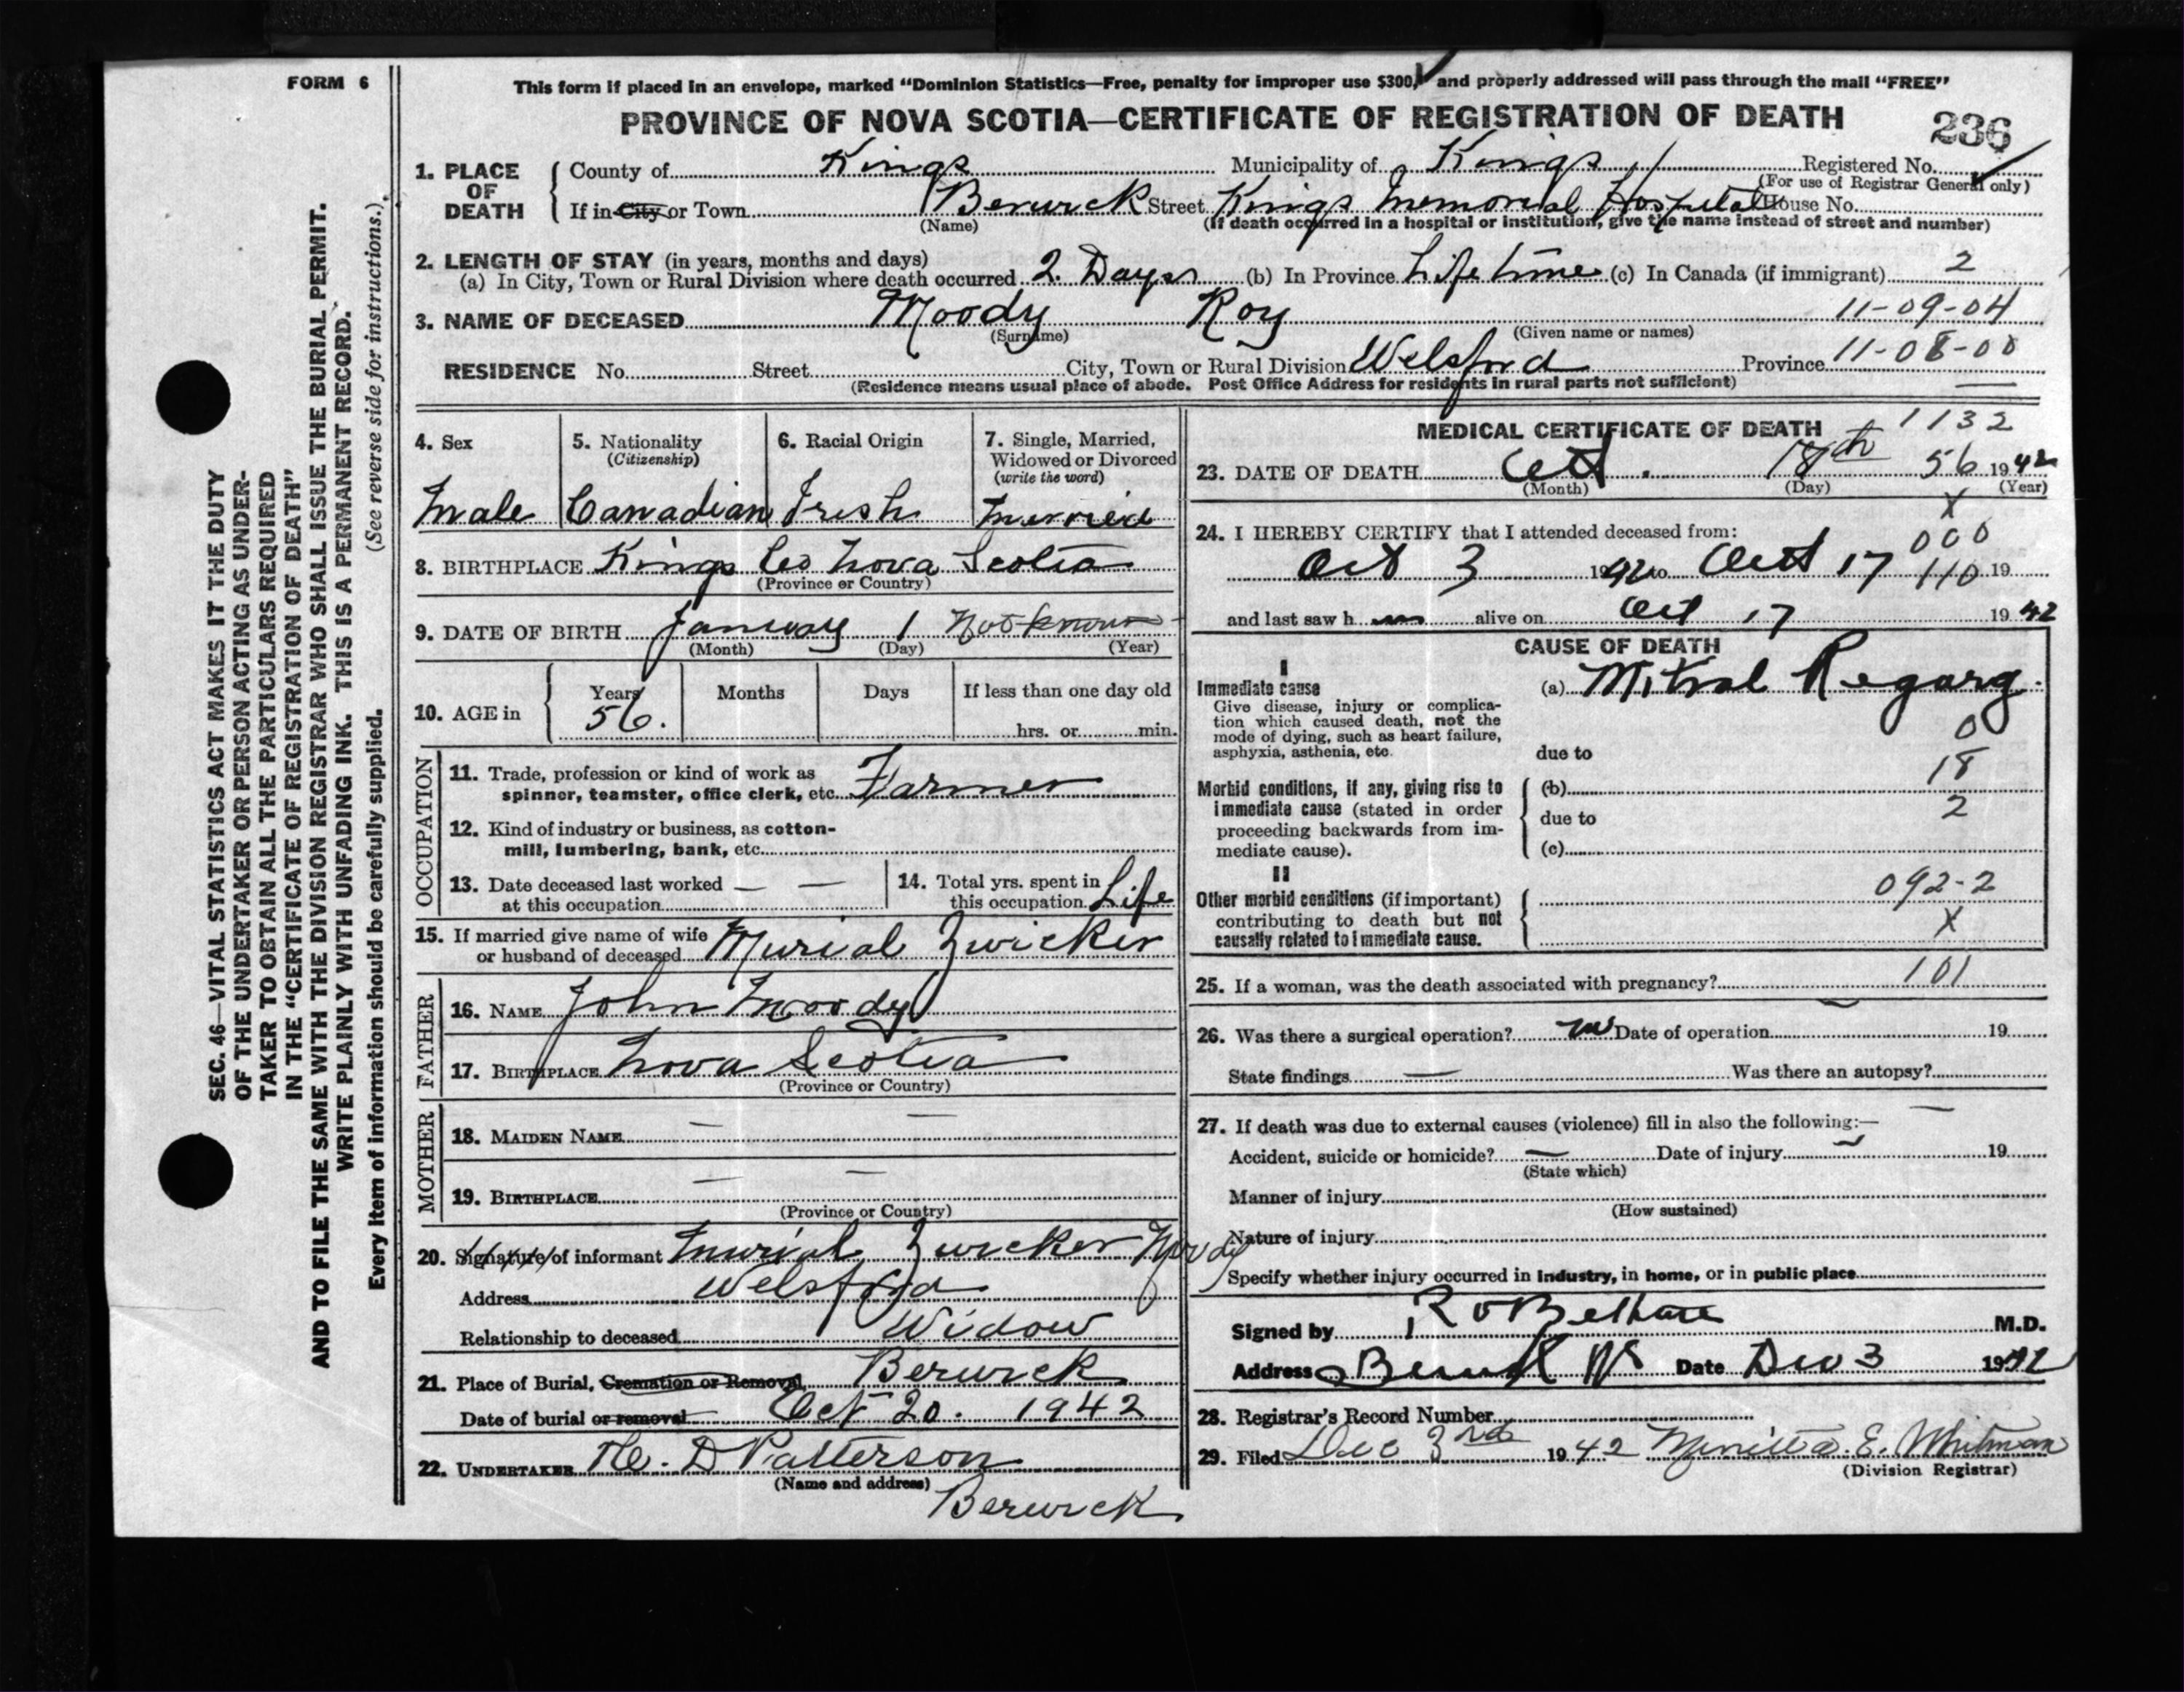 FORM 6
This form if placed in an envelope, marked "Dominion Statistics—Free, penalty for improper use $300, and properly addressed will pass through the mail "FREE"
PROVINCE OF NOVA SCOTIA—CERTIFICATE OF REGISTRATION OF DEATH
236
SEC. 46—VITAL STATISTICS ACT MAKES IT THE DUTY
OF THE UNDERTAKER OR PERSON ACTING AS UNDER-
TAKER TO OBTAIN ALL THE PARTICULARS REQUIRED
IN THE "CERTIFICATE OF REGISTRATION OF DEATH"
AND TO FILE THE SAME WITH THE DIVISION REGISTRAR WHO SHALL ISSUE THE BURIAL PERMIT.
WRITE PLAINLY WITH UNFADING INK. THIS IS A PERMANENT RECORD.
Every item of information should be carefully supplied. (See reverse side for instructions.)
1. PLACE OF DEATH
County of Kings Municipality of Kings Registered No.
(For use of Registrar General only)
If in City or Town Berwick Street Kings Memorial Hospital House No.
(Name) (If death occurred in a hospital or institution, give the name instead of street and number)
2. LENGTH OF STAY (in years, months and days)
(a) In City, Town or Rural Division where death occurred 2 Days (b) In Province Life time (c) In Canada (if immigrant) 2
3. NAME OF DECEASED Moody Roy 11-09-04
(Surname) (Given name or names)
RESIDENCE No. Street City, Town or Rural Division Welsford Province 11-08-00
(Residence means usual place of abode. Post Office Address for residents in rural parts not sufficient)
4. Sex
Male
5. Nationality
(Citizenship)
Canadian
6. Racial Origin
Irish
7. Single, Married,
Widowed or Divorced
(write the word)
Married
8. BIRTHPLACE Kings Co Nova Scotia
(Province or Country)
9. DATE OF BIRTH January 1 Not known
(Month) (Day) (Year)
10. AGE in
Years Months Days If less than one day old
56. hrs. or min.
OCCUPATION
11. Trade, profession or kind of work as
spinner, teamster, office clerk, etc. Farmer
12. Kind of industry or business, as cotton-
mill, lumbering, bank, etc.
13. Date deceased last worked — —
at this occupation
14. Total yrs. spent in
this occupation Life
15. If married give name of wife
or husband of deceased Murial Zwicker
FATHER
16. NAME John Moody
17. BIRTHPLACE Nova Scotia
(Province or Country)
MOTHER
18. MAIDEN NAME — —
19. BIRTHPLACE — —
(Province or Country)
20. Signature of informant Murial Zwicker Moody
Address Welsford
Relationship to deceased Widow
21. Place of Burial, Cremation or Removal Berwick
Date of burial or removal Oct 20. 1942
22. UNDERTAKER D Patterson
(Name and address)
Berwick
MEDICAL CERTIFICATE OF DEATH 1132
23. DATE OF DEATH Oct. 18th 56 1942
(Month) (Day) (Year)
X
24. I HEREBY CERTIFY that I attended deceased from:
000
Oct 3 1942 to Oct 17 110 19
and last saw h im alive on Oct 17 1942
CAUSE OF DEATH
I
Immediate cause
Give disease, injury or complica-
tion which caused death, not the
mode of dying, such as heart failure,
asphyxia, asthenia, etc.
(a) Mitral Regurg.
0
due to
18
Morbid conditions, if any, giving rise to
immediate cause (stated in order
proceeding backwards from im-
mediate cause).
(b)
2
due to
(c)
II
Other morbid conditions (if important)
contributing to death but not
causally related to immediate cause.
092-2
X
25. If a woman, was the death associated with pregnancy? 101
26. Was there a surgical operation? no Date of operation 19
State findings — Was there an autopsy?
27. If death was due to external causes (violence) fill in also the following:—
Accident, suicide or homicide? — Date of injury 19
(State which)
Manner of injury
(How sustained)
Nature of injury
Specify whether injury occurred in industry, in home, or in public place
Signed by M.D.
Address Berwick NS Date Dec 3 1942
28. Registrar's Record Number
29. Filed Dec 3rd 1942 E. Whitman
(Division Registrar)